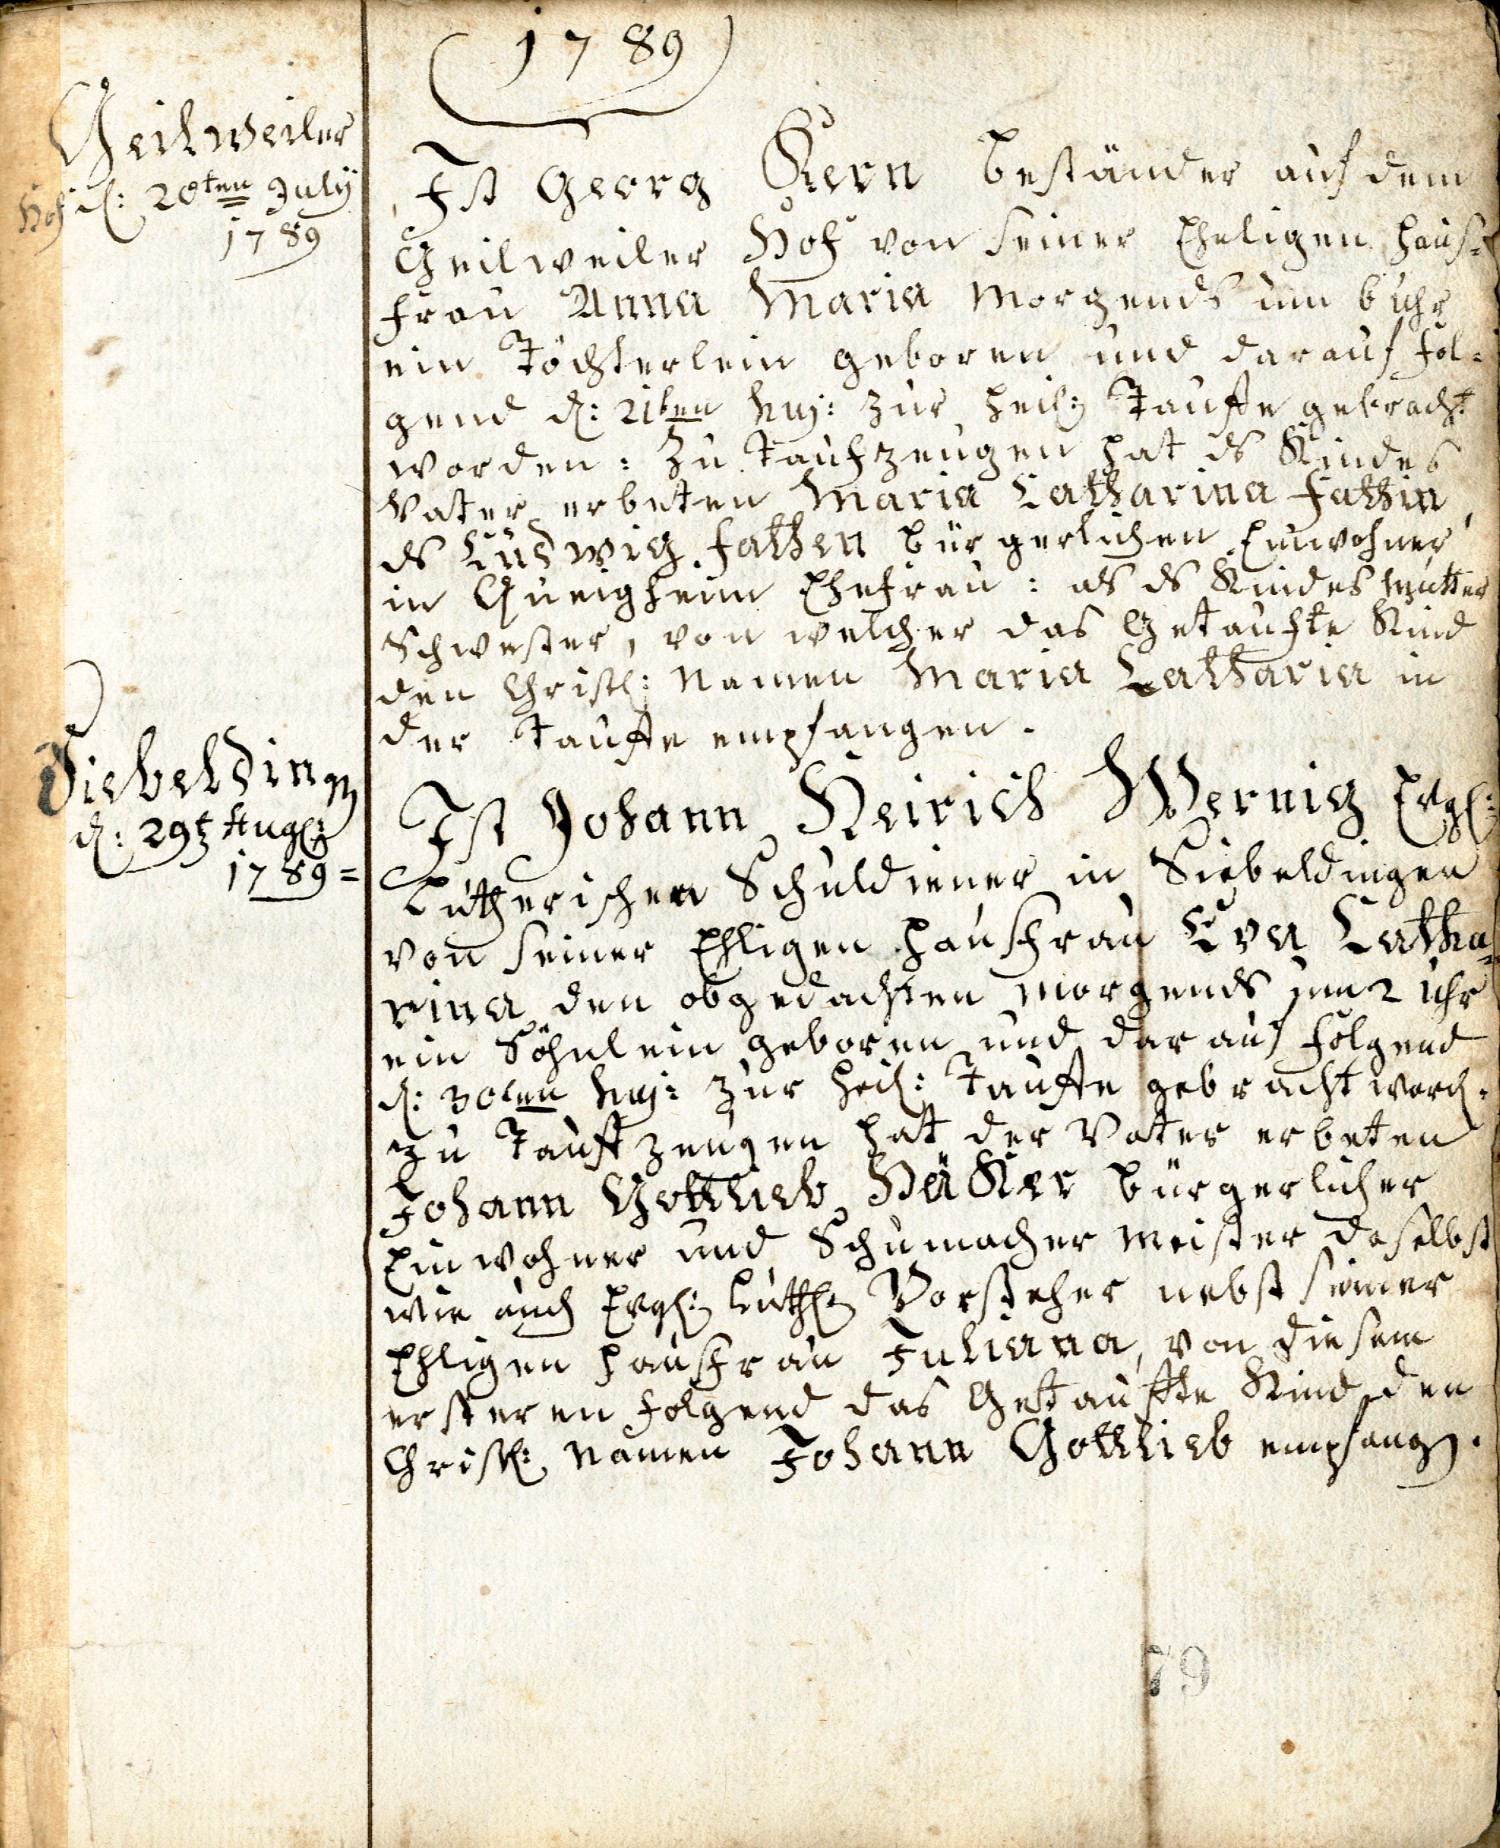 1789
Geilweiler
Hof d: 20ten July
1789
Ist Georg Kern beständer auf dem
Geilweiler Hof von seiner Eheligen Hauß-
frau Anna Maria Morgends um 6 uhr
ein Töchterlein geboren und darauf fol-
gend d: 21ten huj: zur heil: Tauffe gebracht
worden: Zu Taufzeugen hat ds Kindes
Vater erbeten Maria Catharina Fathin,
ds Ludwig Fathen bürgerlichen Einwohner
in Queigheim Ehefrau: als ds Kindes Mutter
Schwester, von welcher das Getaufte Kind
den Christl: Namen Maria Catharia in
der Tauffe empfangen.
Siebelding
d: 29t Aug:
1789=
Ist Johann Heirich Wernig Evgl:
Lutherischen Schuldiener in Siebeldingen
von seiner Ehligen Hausfrau Eva Catha-
rina den obgedachten Morgends um 2 Uhr
ein Söhnlein geboren und darauf folgend
d: 30ten huj: zur heil: Tauffe gebracht word.
zu Tauffzeugen hat der Vater erbeten
Johann Gottlieb Häker bürgerlicher
Einwohner und Schumacher Meister daselbst
wie auch Evgl: Luth: Vorsteher nebst seiner
Ehligen Hausfrau Juliana, von diesem
ersteren folgend das Gettauffte Kind den
Christl: Namen Johann Gottlieb empfang.
79